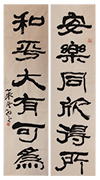 安樂同欣得所
和平大有可為